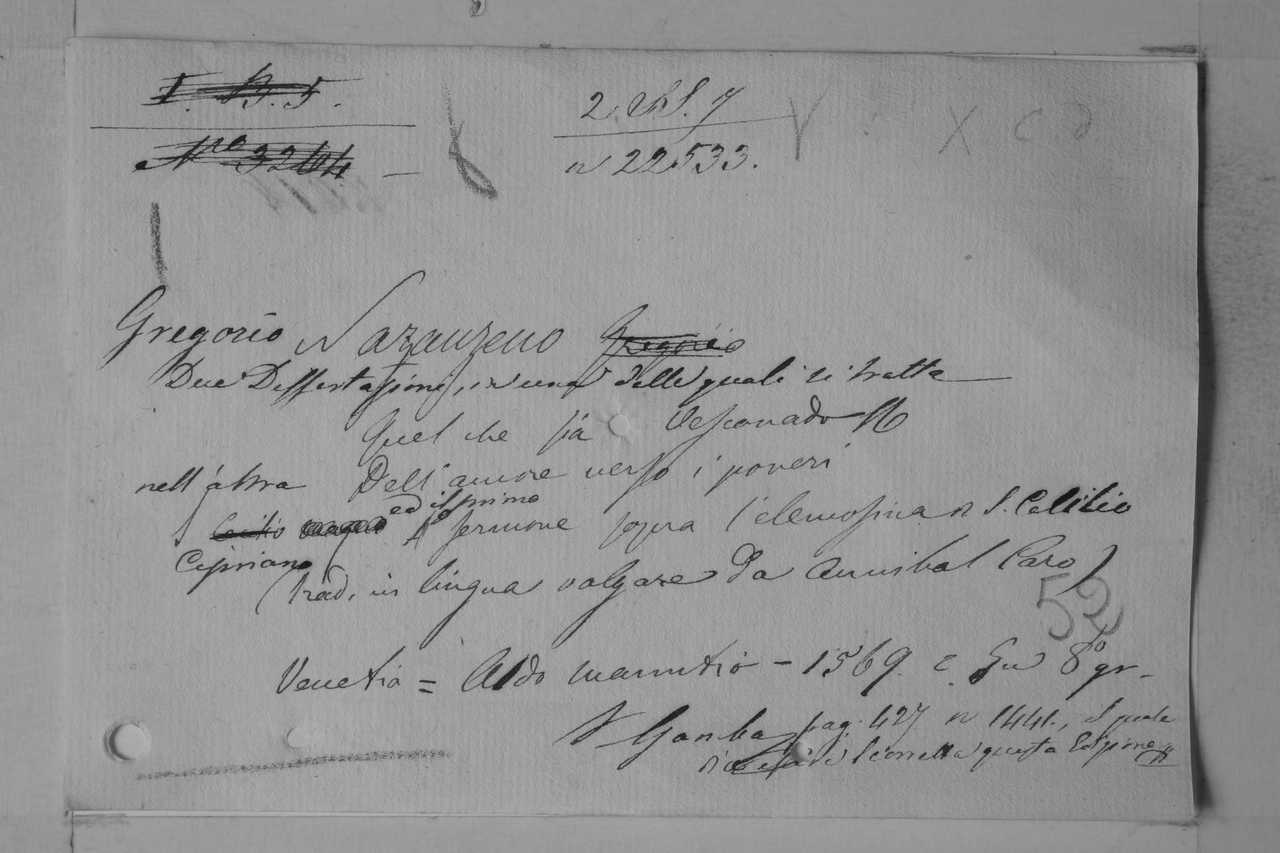 I. B. 5.
Nro 3244
2. 7
n 22533.
X C D
Gregorio Nazanzeno Gregorio
Due Dissertazioni, in una delle quali si tratta
Quel che sia Vesconado
nell'altra Dell'amore verso i poveri
ed il primo
sermone sopra l'elemosina di S. Cecilio
Cipriano
(trad. in lingua volgare da Annibal Caro)
52
Venetia = Aldo Manutio - 1569. C. in 8o gr.
V Gamba pag. 427 n 1441., il quale
scorretta questa Edizione